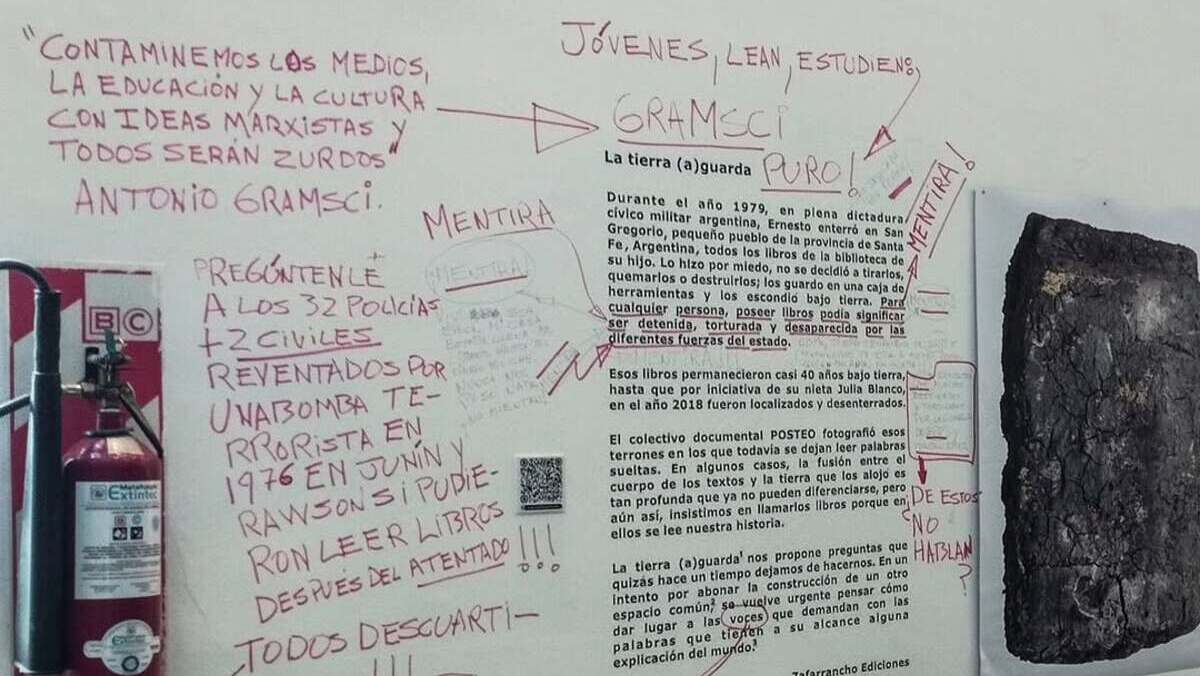 "CONTAMINEMOS LOS MEDIOS,
LA EDUCACIÓN Y LA CULTURA
CON IDEAS MARXISTAS Y
TODOS SERÁN ZURDOS"
ANTONIO GRAMSCI.
JÓVENES, LEAN, ESTUDIEN:
GRAMSCI
PURO!
MENTIRA!
MENTIRA
MENTIRA!
PREGÚNTENLE
A LOS 32 POLICÍAS
+2 CIVILES
REVENTADOS POR
UNA BOMBA TE-
RRORISTA EN
1976 EN JUNÍN Y
RAWSON SI PUDIE-
RON LEER LIBROS
DESPUÉS DEL ATENTADO!!!
TODOS DESCUARTI-
!!!
La tierra (a)guarda
Durante el año 1979, en plena dictadura
cívico militar argentina, Ernesto enterró en San
Gregorio, pequeño pueblo de la provincia de Santa
Fe, Argentina, todos los libros de la biblioteca de
su hijo. Lo hizo por miedo, no se decidió a tirarlos,
quemarlos o destruirlos; los guardo en una caja de
herramientas y los escondió bajo tierra. Para
cualquier persona, poseer libros podía significar
ser detenida, torturada y desaparecida por las
diferentes fuerzas del estado.
Esos libros permanecieron casi 40 años bajo tierra,
hasta que por iniciativa de su nieta Julia Blanco,
en el año 2018 fueron localizados y desenterrados.
El colectivo documental POSTEO fotografió esos
terrones en los que todavia se dejan leer palabras
sueltas. En algunos casos, la fusión entre el
cuerpo de los textos y la tierra que los alojo es
tan profunda que ya no pueden diferenciarse, pero
aún así, insistimos en llamarlos libros porque en
ellos se lee nuestra historia.
La tierra (a)guarda¹ nos propone preguntas que
quizás hace un tiempo dejamos de hacernos. En un
intento por abonar la construcción de un otro
espacio común,² se vuelve urgente pensar cómo
dar lugar a las voces que demandan con las
palabras que tienen a su alcance alguna
explicación del mundo.³
Zafarrancho Ediciones
¿DE ESTOS
NO
HABLAN
?
BC
Extintec